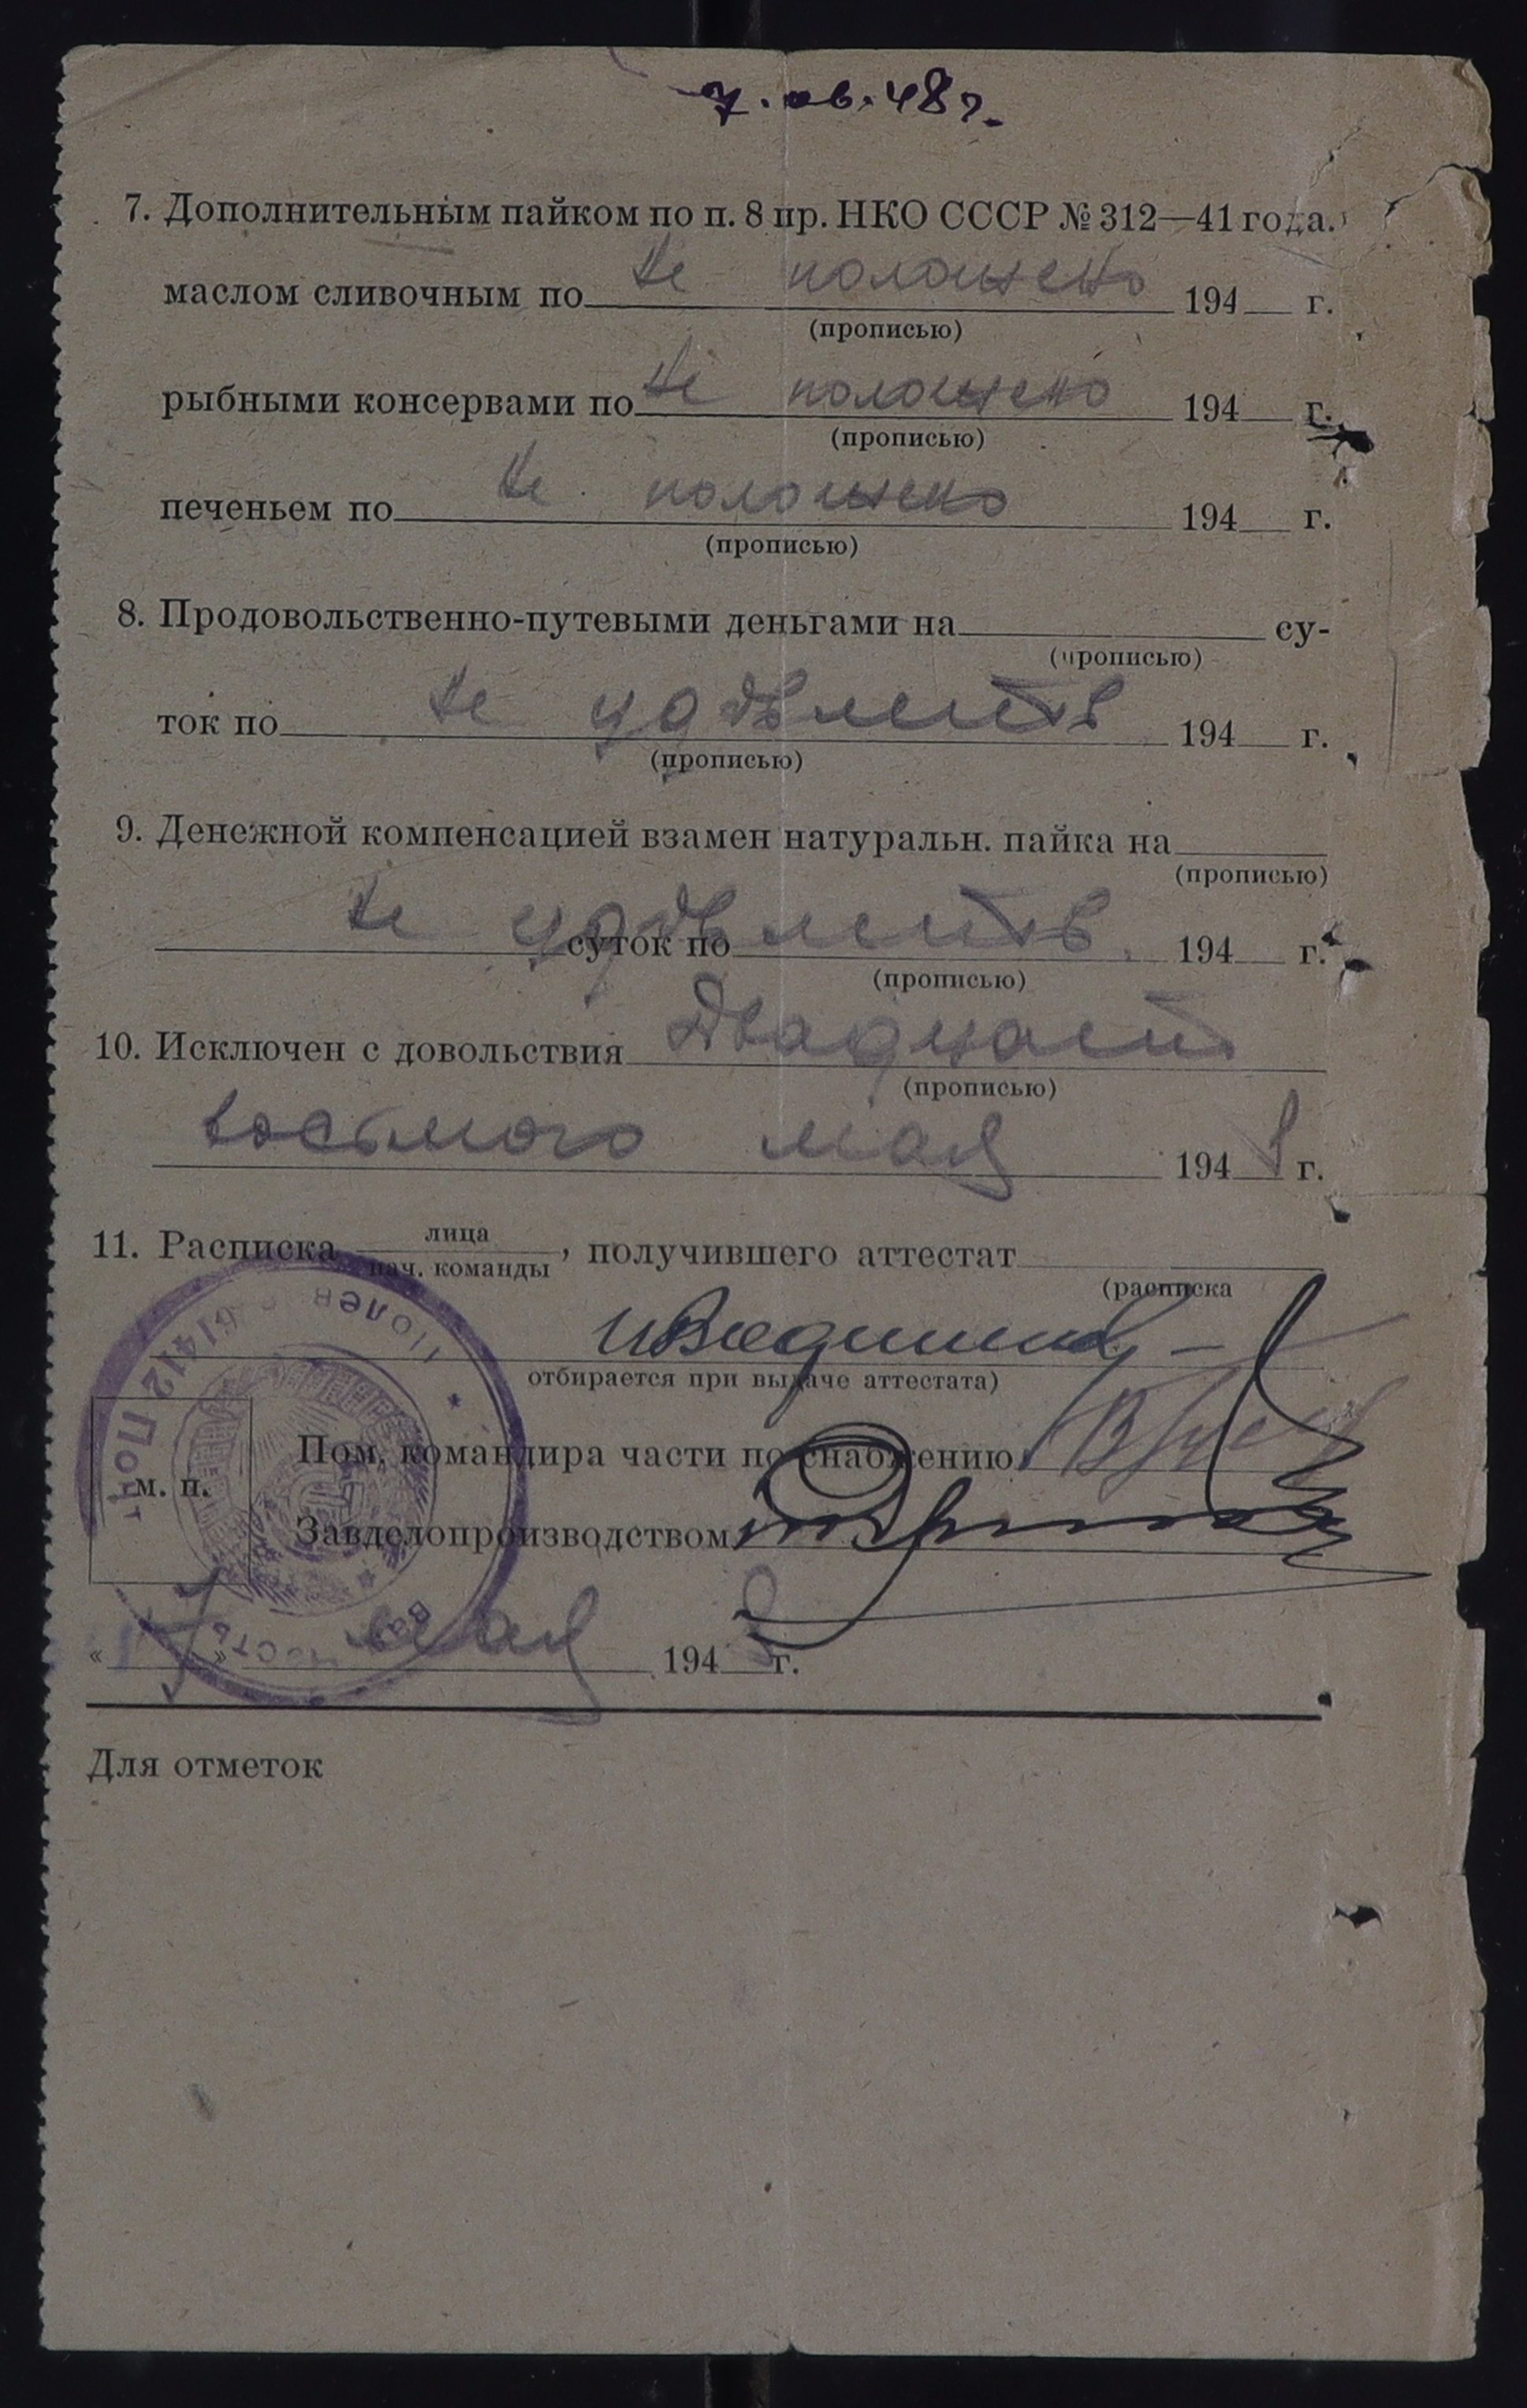 7. Дополнительным пайком по п. 8 пр. НКО СССР № 312—41 года.
маслом сливочным по не положено 194 г.
(прописью)
рыбными консервами по не положено 194 г.
(прописью)
печеньем по не положено 194 г.
(прописью)
8. Продовольственно-путевыми деньгами на су-
(прописью)
ток по не 194 г.
(прописью)
9. Денежной компенсацией взамен натуральн. пайка на
(прописью)
не суток по 194 г.
(прописью)
10. Исключен с довольствия Двадцать
(прописью)
восьмого мая 1948 г.
11. Расписка лица
нач. команды, получившего аттестат
(расписка
отбирается при выдаче аттестата)
Пом. командира части по снабжению
м. п.
Завделопроизводством
мая 1948 г.
61412 Почт
Для отметок